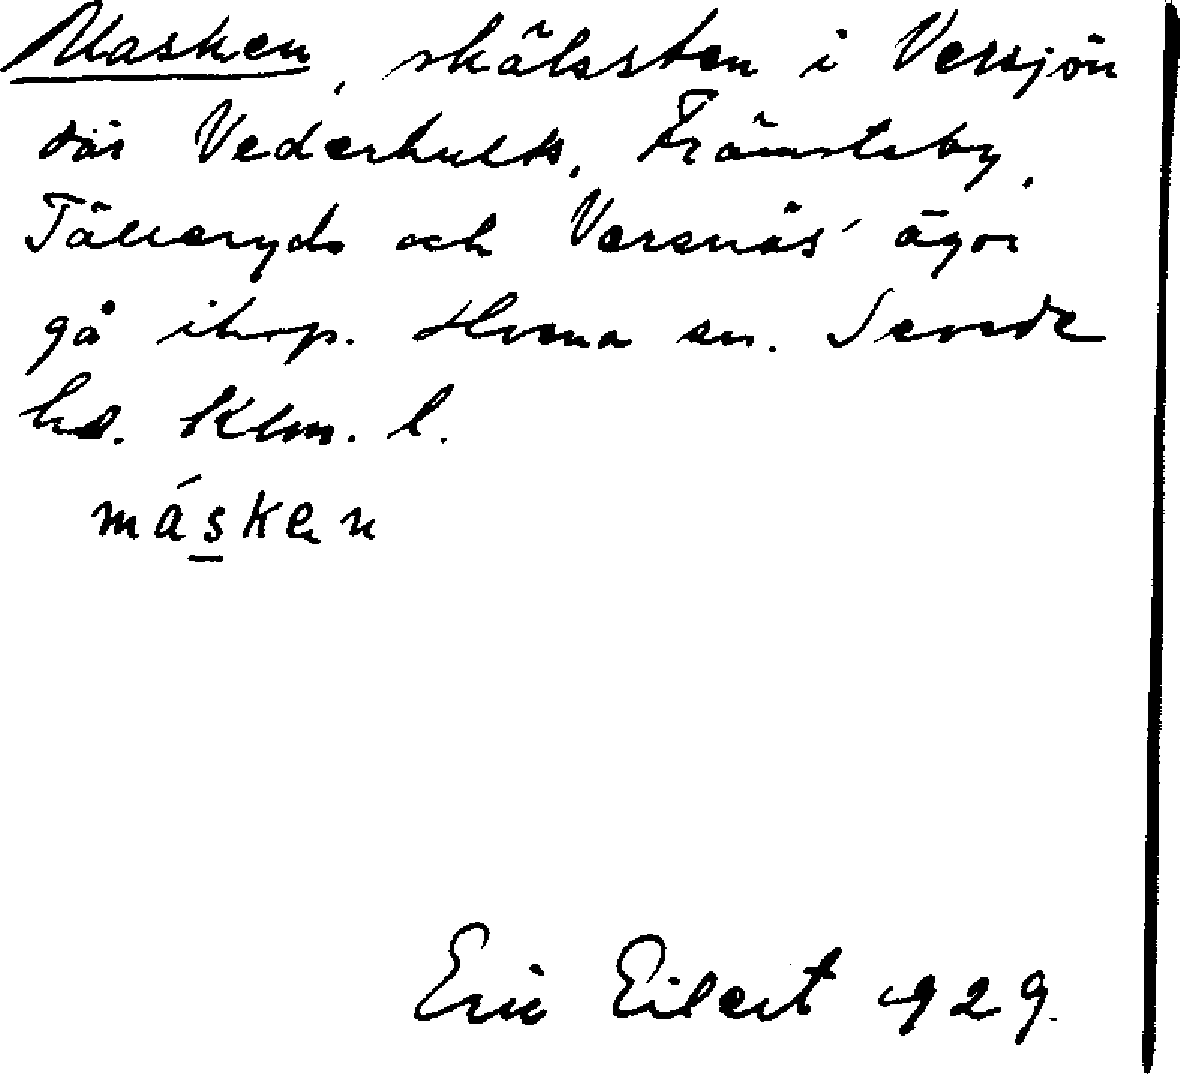 Masken, skälssten i Versjön
där Vederhults, Främsteby,
Tälleryds och Versnäs' ägor
gå ihop. sn. Sevede
hd. Klm. l.
másken
Eric Eilert 1929.